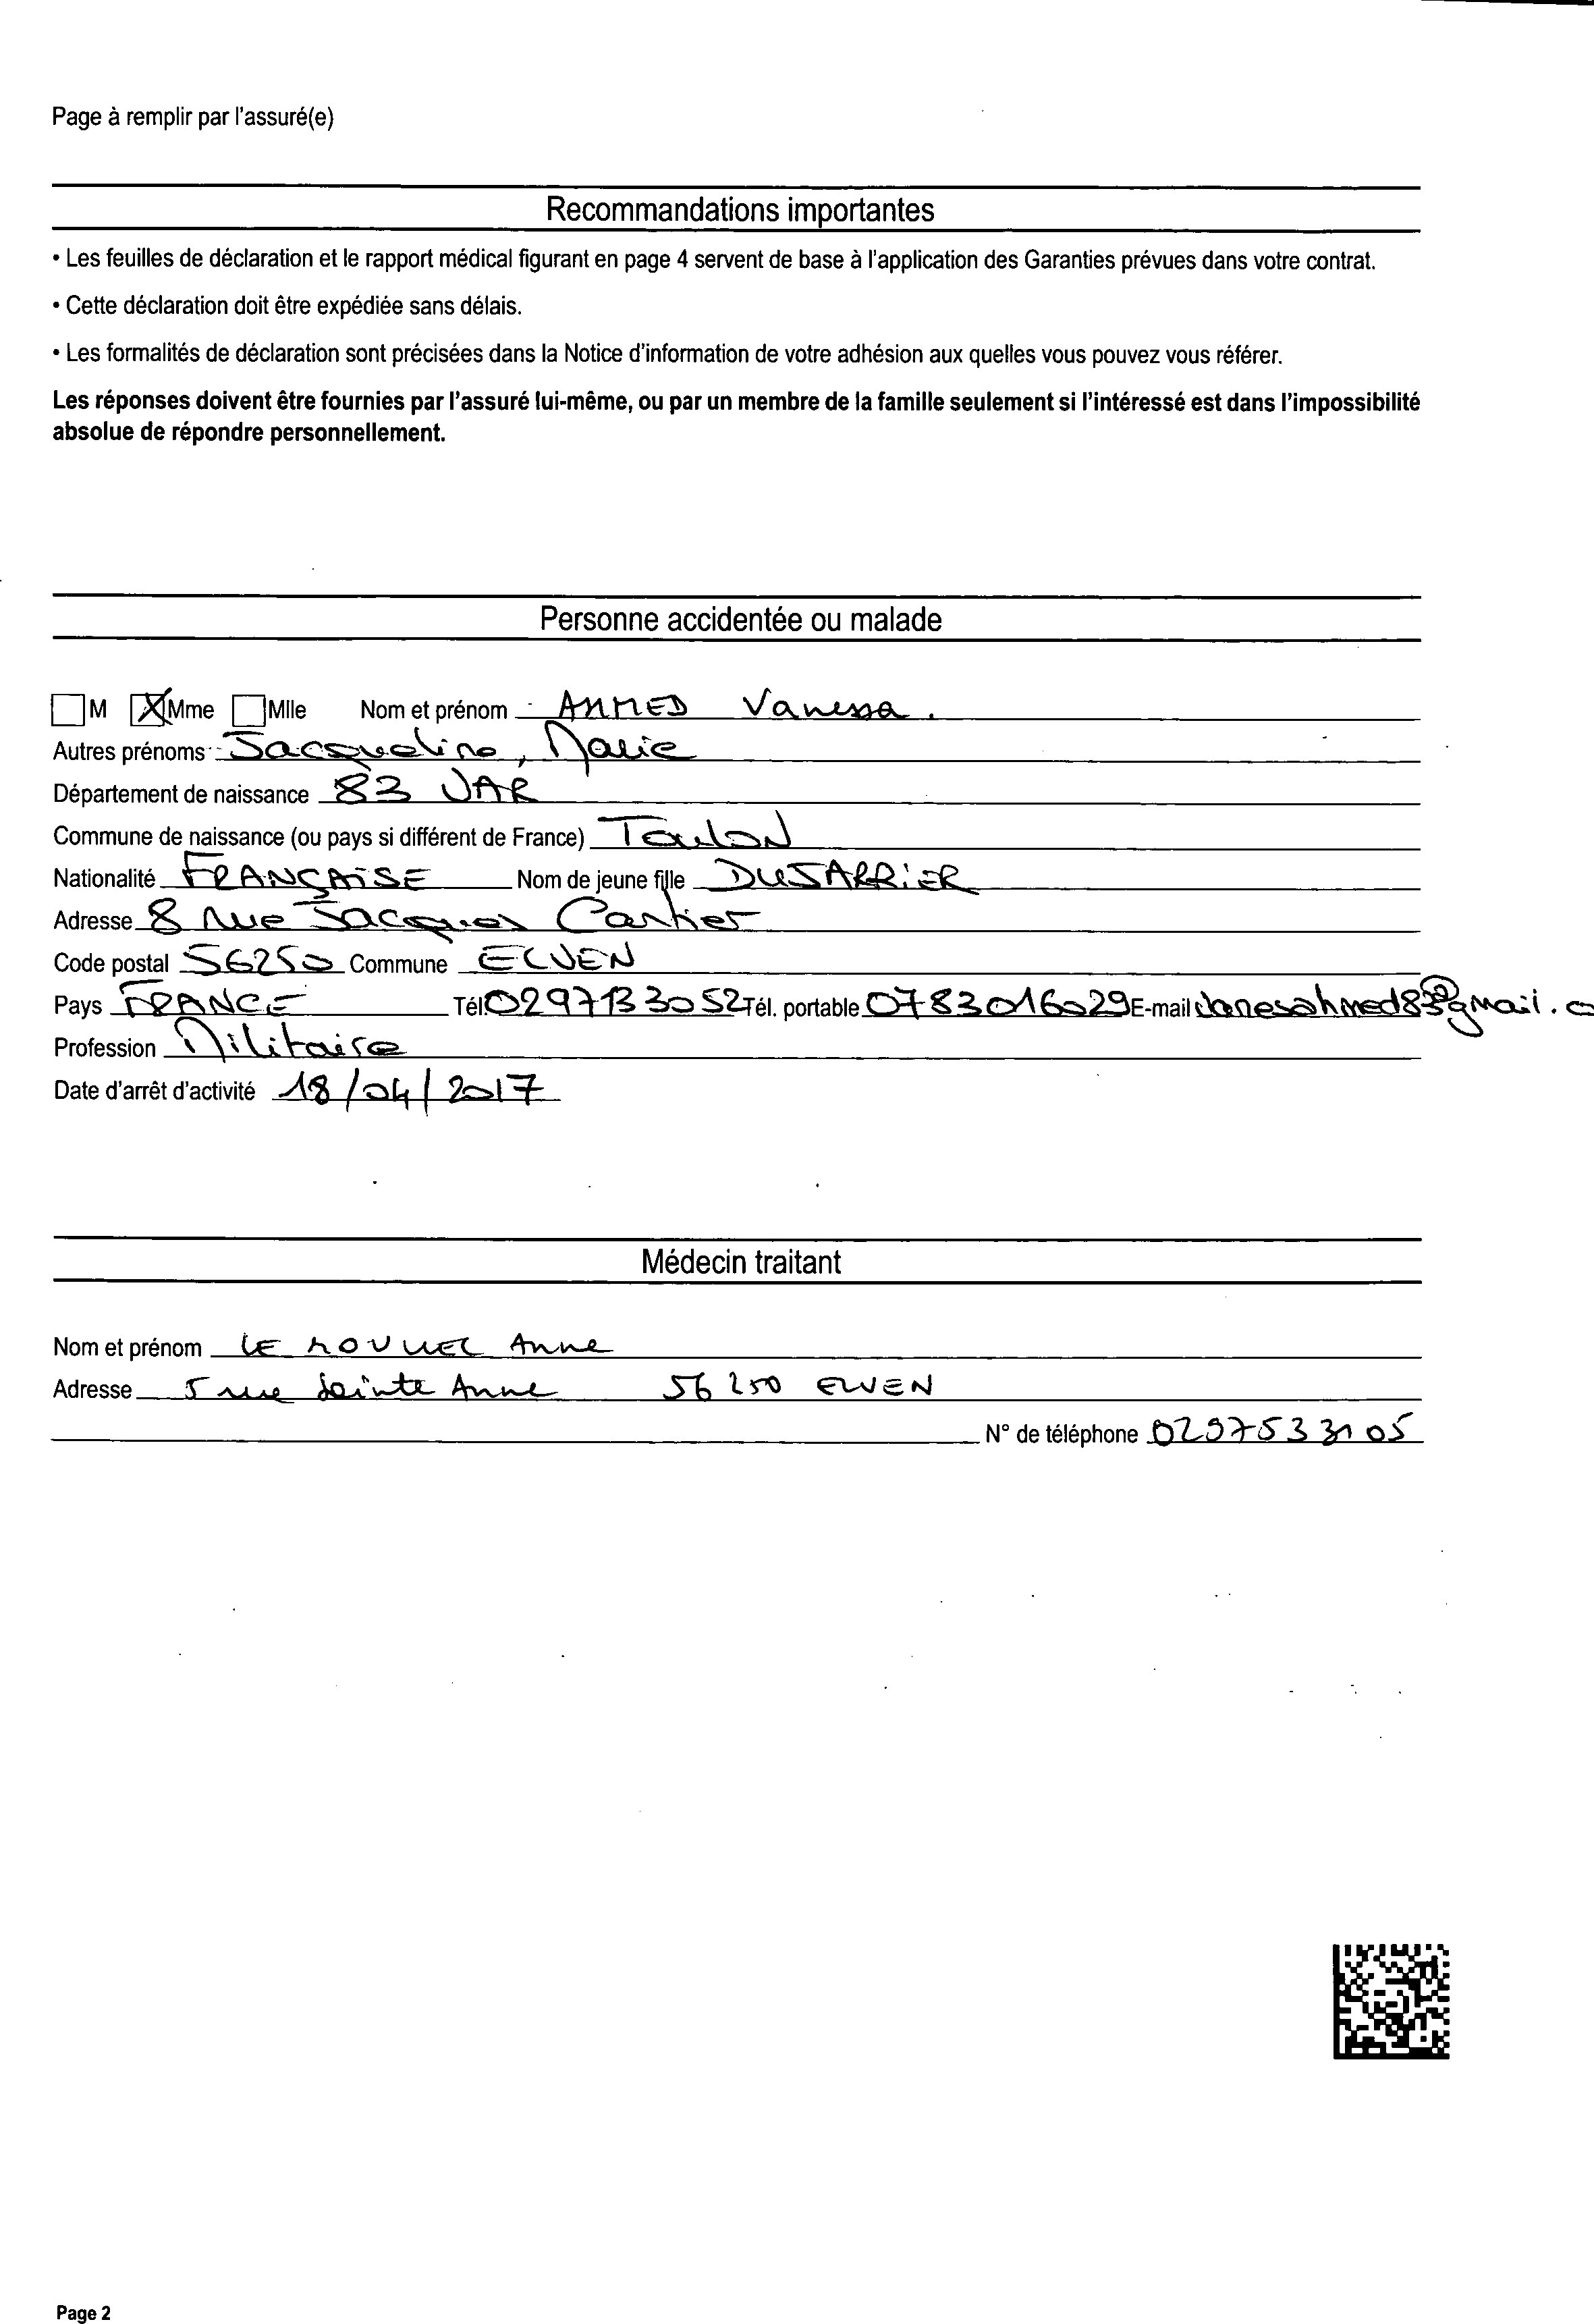 Page à remplir par l'assuré(e)
Recommandations importantes
• Les feuilles de déclaration et le rapport médical figurant en page 4 servent de base à l'application des Garanties prévues dans votre contrat.
• Cette déclaration doit être expédiée sans délais.
• Les formalités de déclaration sont précisées dans la Notice d'information de votre adhésion aux quelles vous pouvez vous référer.
Les réponses doivent être fournies par l'assuré lui-même, ou par un membre de la famille seulement si l'intéressé est dans l'impossibilité
absolue de répondre personnellement.
Personne accidentée ou malade
M Mme Mlle Nom et prénom AHMED Vanessa.
Autres prénoms Jacqueline, Marie
Département de naissance 83 VAR
Commune de naissance (ou pays si différent de France) Toulon
Nationalité FRANÇAISE Nom de jeune fille DUJARRIER
Adresse 8 rue Jacques Cartier
Code postal 56250 Commune ELVEN
Pays FRANCE Tél. 0297133052 Tél. portable 0783016029 E-mail vanesahmed83@gmail.c
Profession Militaire
Date d'arrêt d'activité 18/04/2017
Médecin traitant
Nom et prénom LE Anne
Adresse 5 rue Sainte Anne 56250 ELVEN
N° de téléphone 0297533105
Page 2